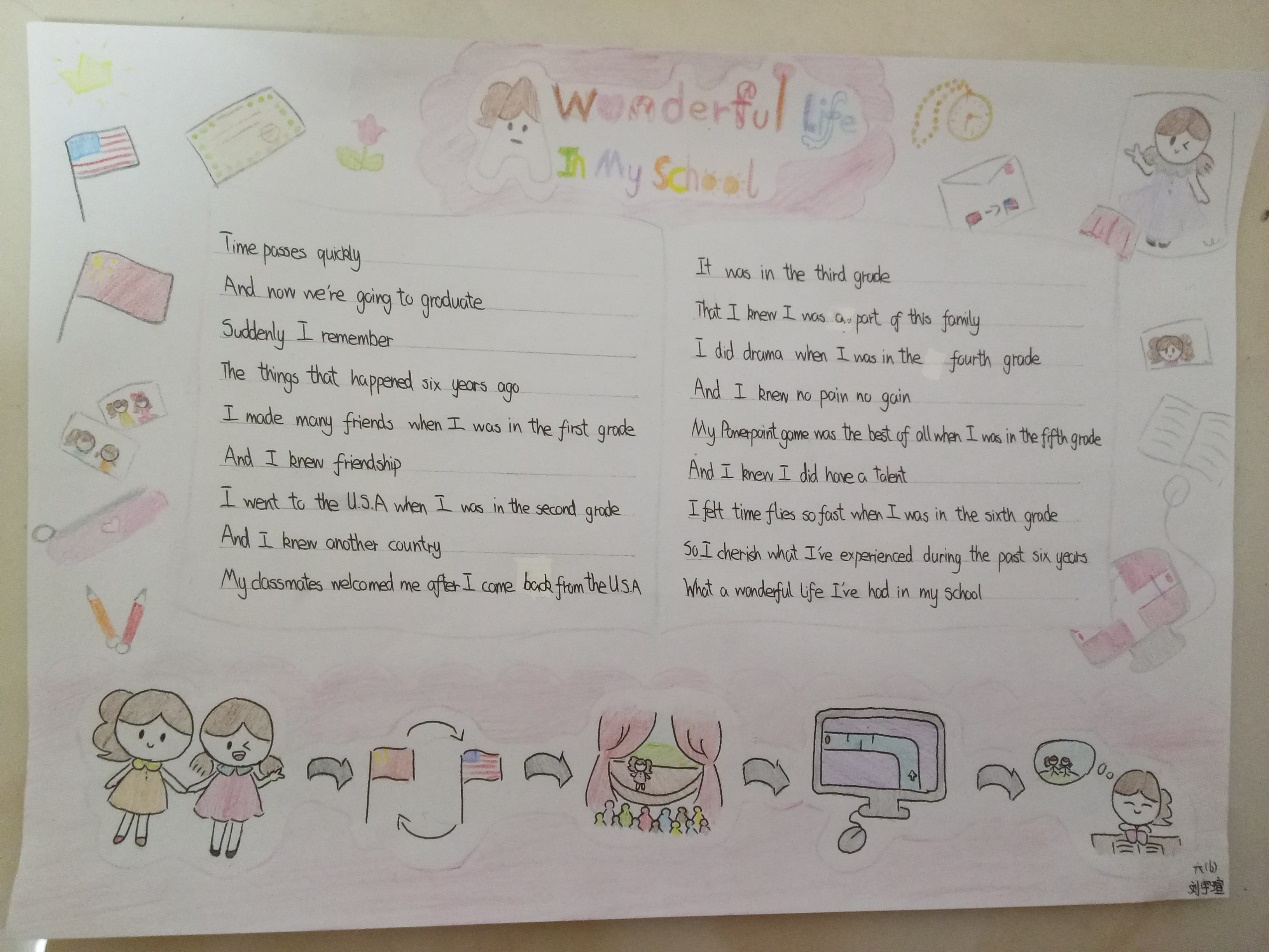 Wonderful Life
In My School
Time passes quickly
And now we're going to graduate
Suddenly I remember
The things that happened six years ago
I made many friends when I was in the first grade
And I knew friendship
I went to the U.S.A when I was in the second grade
And I knew another country
My classmates welcomed me after I come back from the U.S.A
It was in the third grade
That I knew I was a part of this family
I did drama when I was in the fourth grade
And I knew no pain no gain
My Powerpoint game was the best of all when I was in the fifth grade
And I knew I did have a talent
I felt time flies so fast when I was in the sixth grade
So I cherish what I've experienced during the past six years
What a wonderful life I've had in my school
六(6)
刘宇瑄